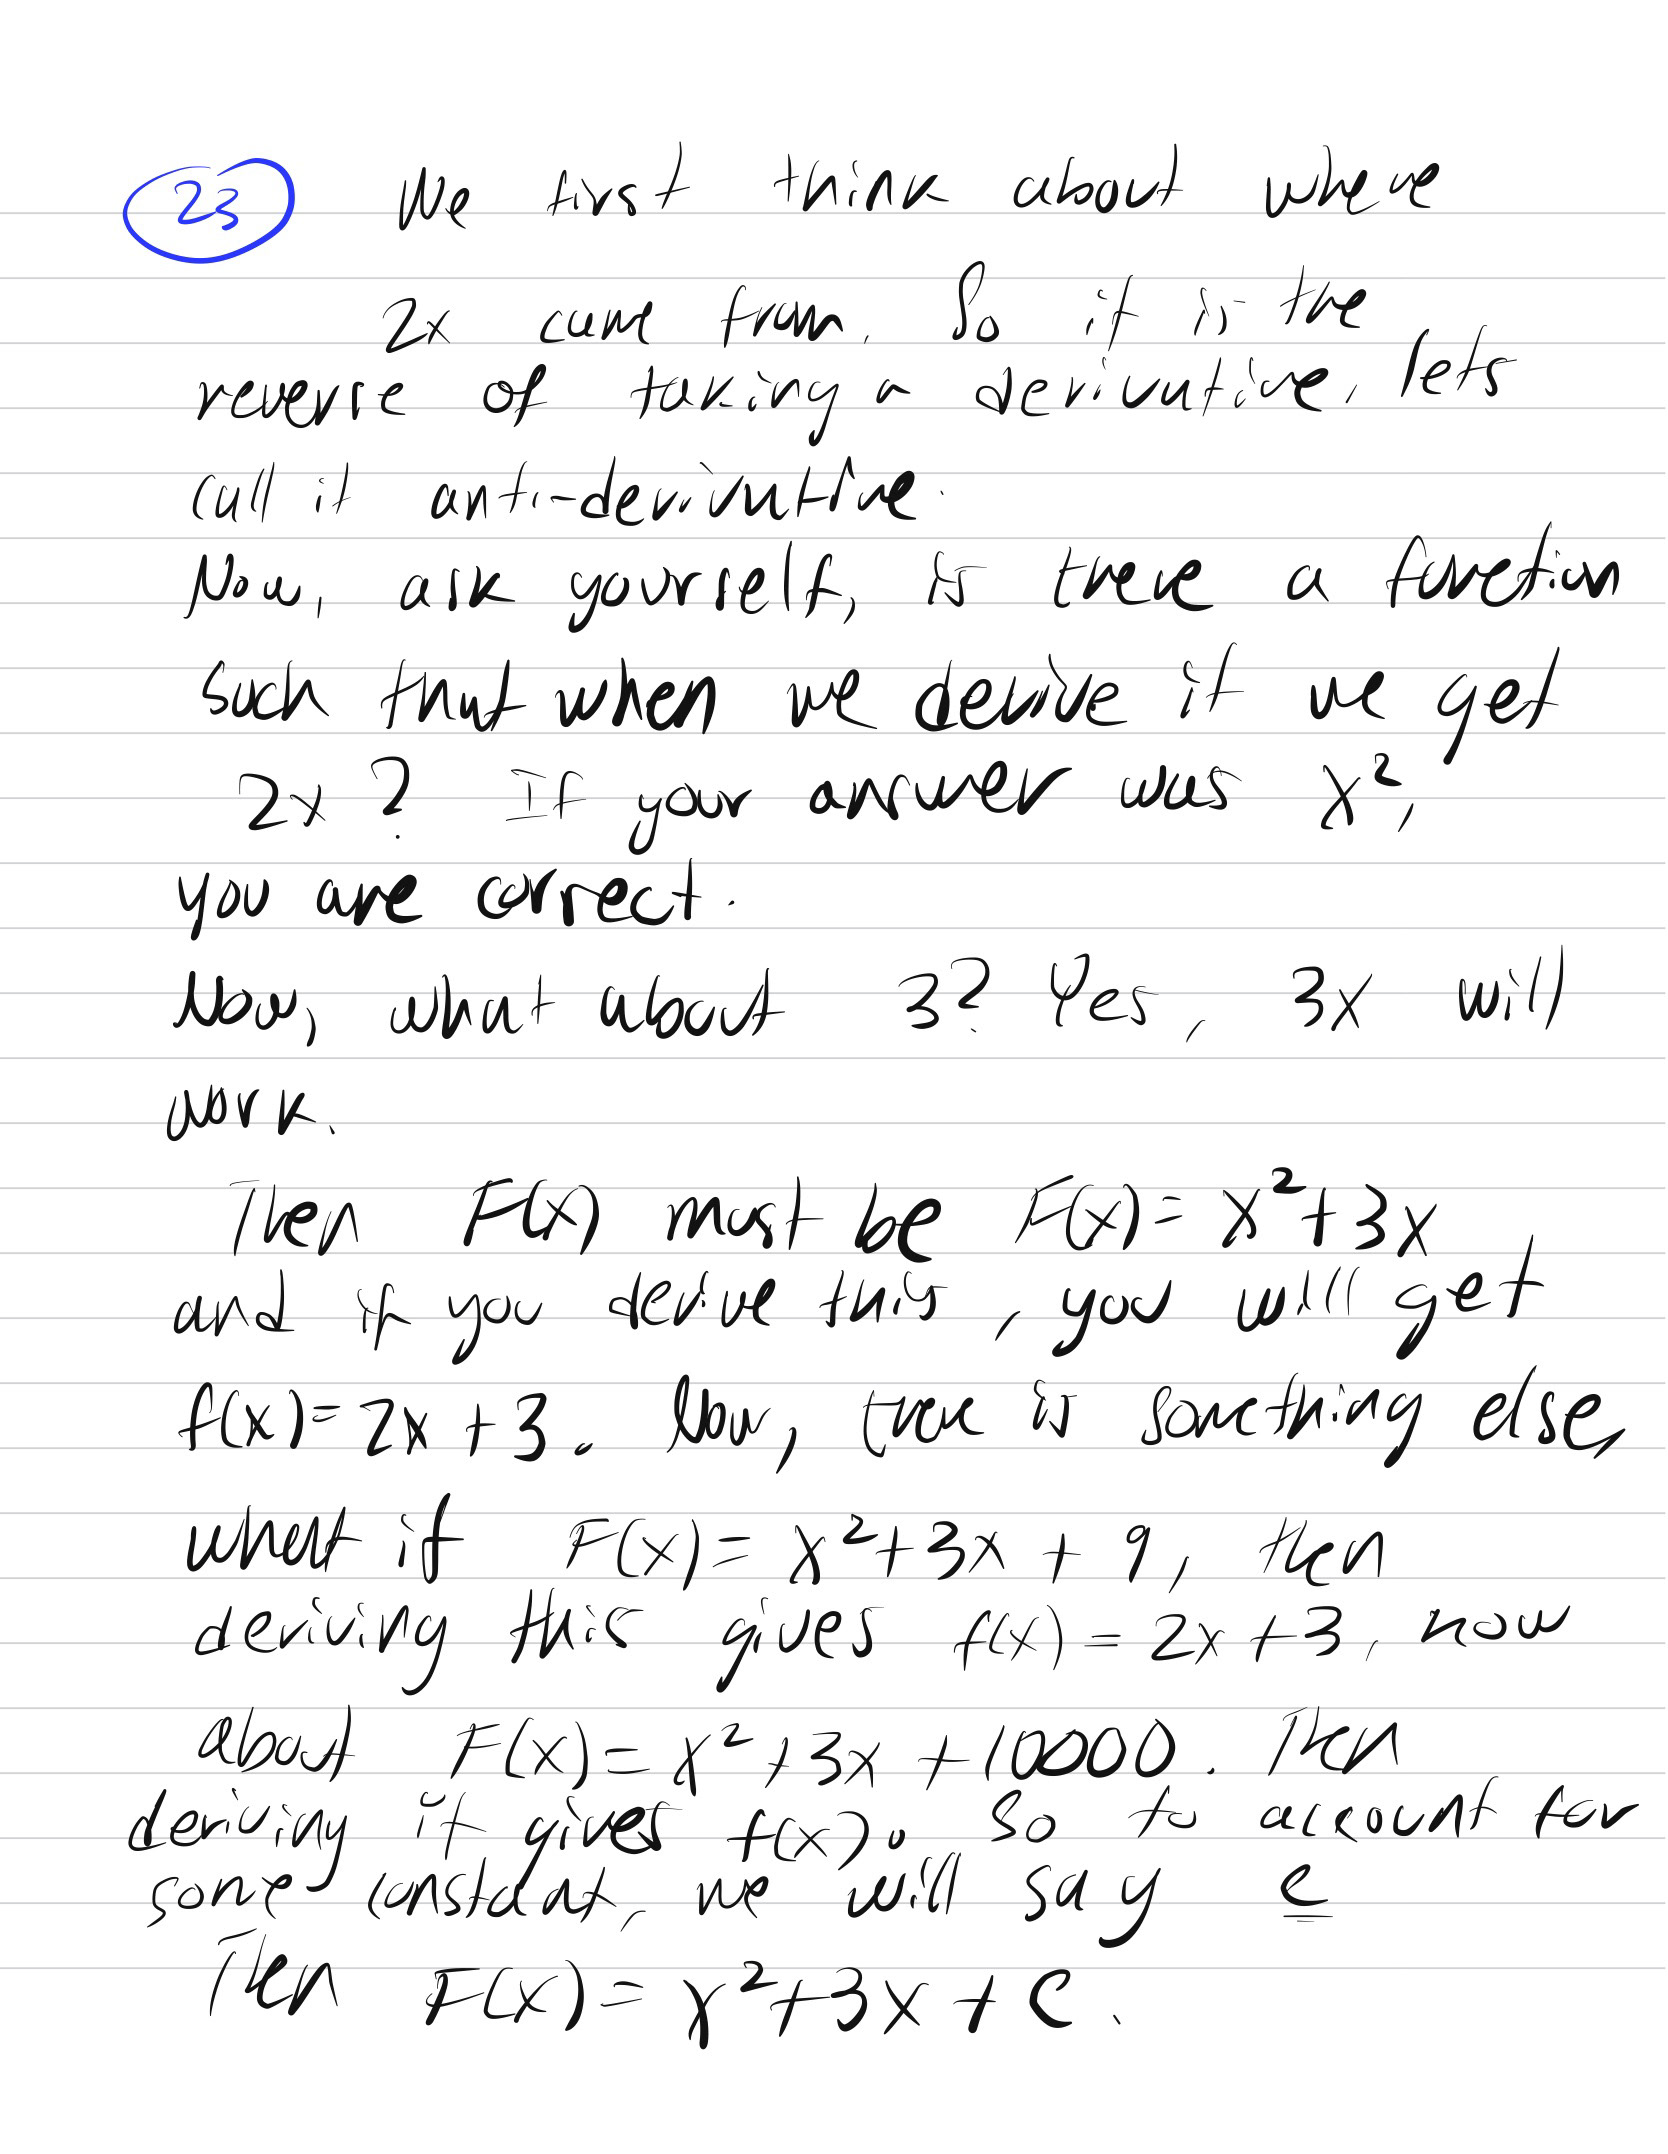 23 We first think about where
2x came from. So if is the
reverse of taking a derivative, lets
call it anti-derivative.
Now, ask yourself, is there a function
such that when we derive it we get
2x ? If your answer was x²,
you are correct.
Now, what about 3? Yes, 3x will
work.
Then F(x) must be F(x) = x²+3x
and if you derive this, you will get
f(x)=2x+3. Now, there is something else,
what if F(x) = x²+3x + 9, then
deriving this gives f(x) = 2x+3, now
about F(x) = x²+3x+10000. Then
deriving it gives f(x). So to account for
some constant, we will say c
Then F(x) = x²+3x + C.